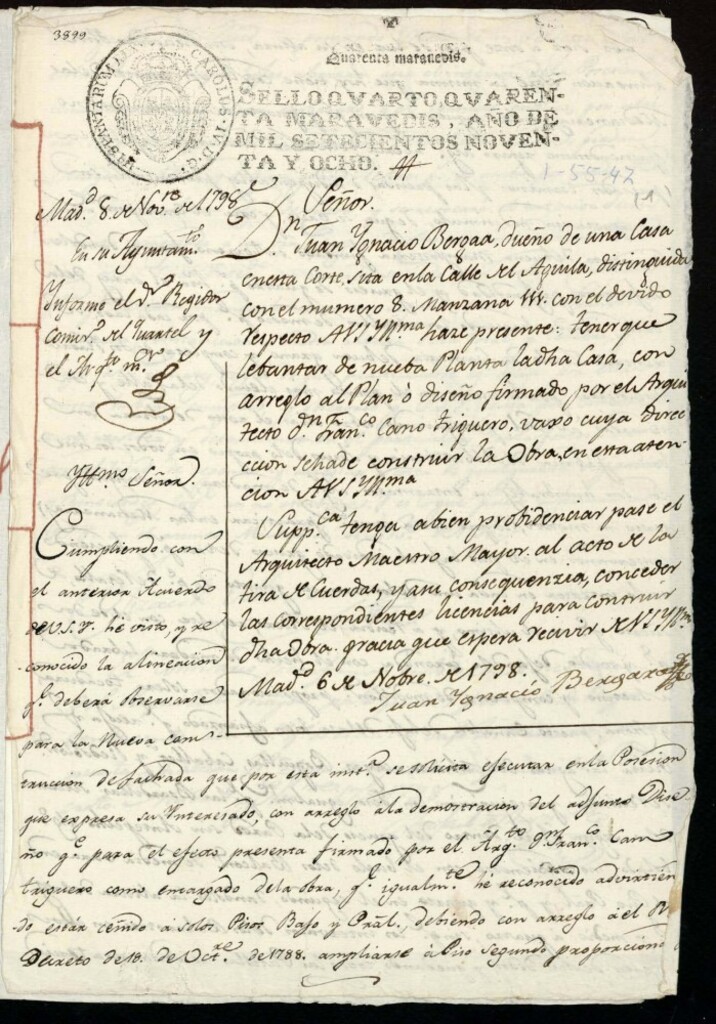 3899
Quarenta maravedis.
HISPANIARUM REX CAROLUS IV D G
SELLO QVARTO, QVAREN-
TA MARAVEDIS, AÑO DE
MIL SETECIENTOS NOVEN-
TA Y OCHO.
1-55-47
(1)
Mad.d 8 de Nov.re de 1798
En su Ayuntam.to
Informe el S.r Regidor
Comis.o del Quartel y
el Arq.to m.or
Yttmo Señor.
Cumpliendo con
el anterior Acuerdo
de V.S.Y. hé visto, y re
conocido la alineacion
q.e deberá observarse
para la Nueva cons-
Señor.
D.n Juan Ygnacio Bergara, dueño de una Casa
en esta Corte, sita en la Calle del Aguila, distinguida
con el numero 8. Manzana 111. con el devido
respecto A V S Y Yll.ma haze presente: tener que
lebantar de nueba Planta la dha Casa, con
arreglo al Plan ò diseño firmado por el Arqui
tecto d.n Fran.co Cano triguero, vaxo cuya direc
ccion se ha de construir la Obra, en esta aten-
cion A V S Y Yll.ma
Supp.ca tenga a bien probidenciar pase el
Arquitecto Maestro Mayor. al acto de la
tira de Cuerdas, y a su consequenzia, conceder
las correspondientes licencias para construir
dha Obra. gracia que espera recivir de V S Y Yll.ma
Mad.d 6 de Nobre. de 1798.
Juan Ygnacio Bergara
truccion de fachada que por esta inst.a se solicita executar en la Posesion
que expresa su Ynteresado, con arreglo à la demostracion del adjunto Dise-
ño q.e para el efecto presenta firmado por el Arq.to D.n Fran.co Cano
triguero como encargado de la obra, q.e igualm.te hé reconocido advirtien
do estàr ceñido à solos Pisos Baxo y Pràl, debiendo con arreglo à el R.l
Decreto de 18. de Oct.re de 1788. ampliarse à Piso segundo proporciono